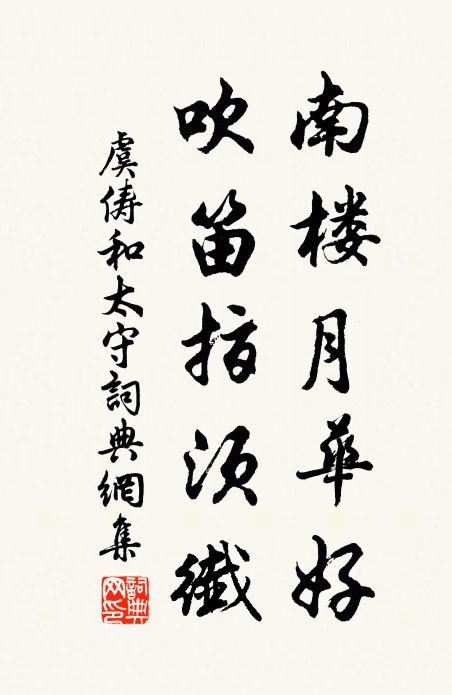 南楼月華好
吹笛指須纖
虞儔和太守詞典網集
詞典網印